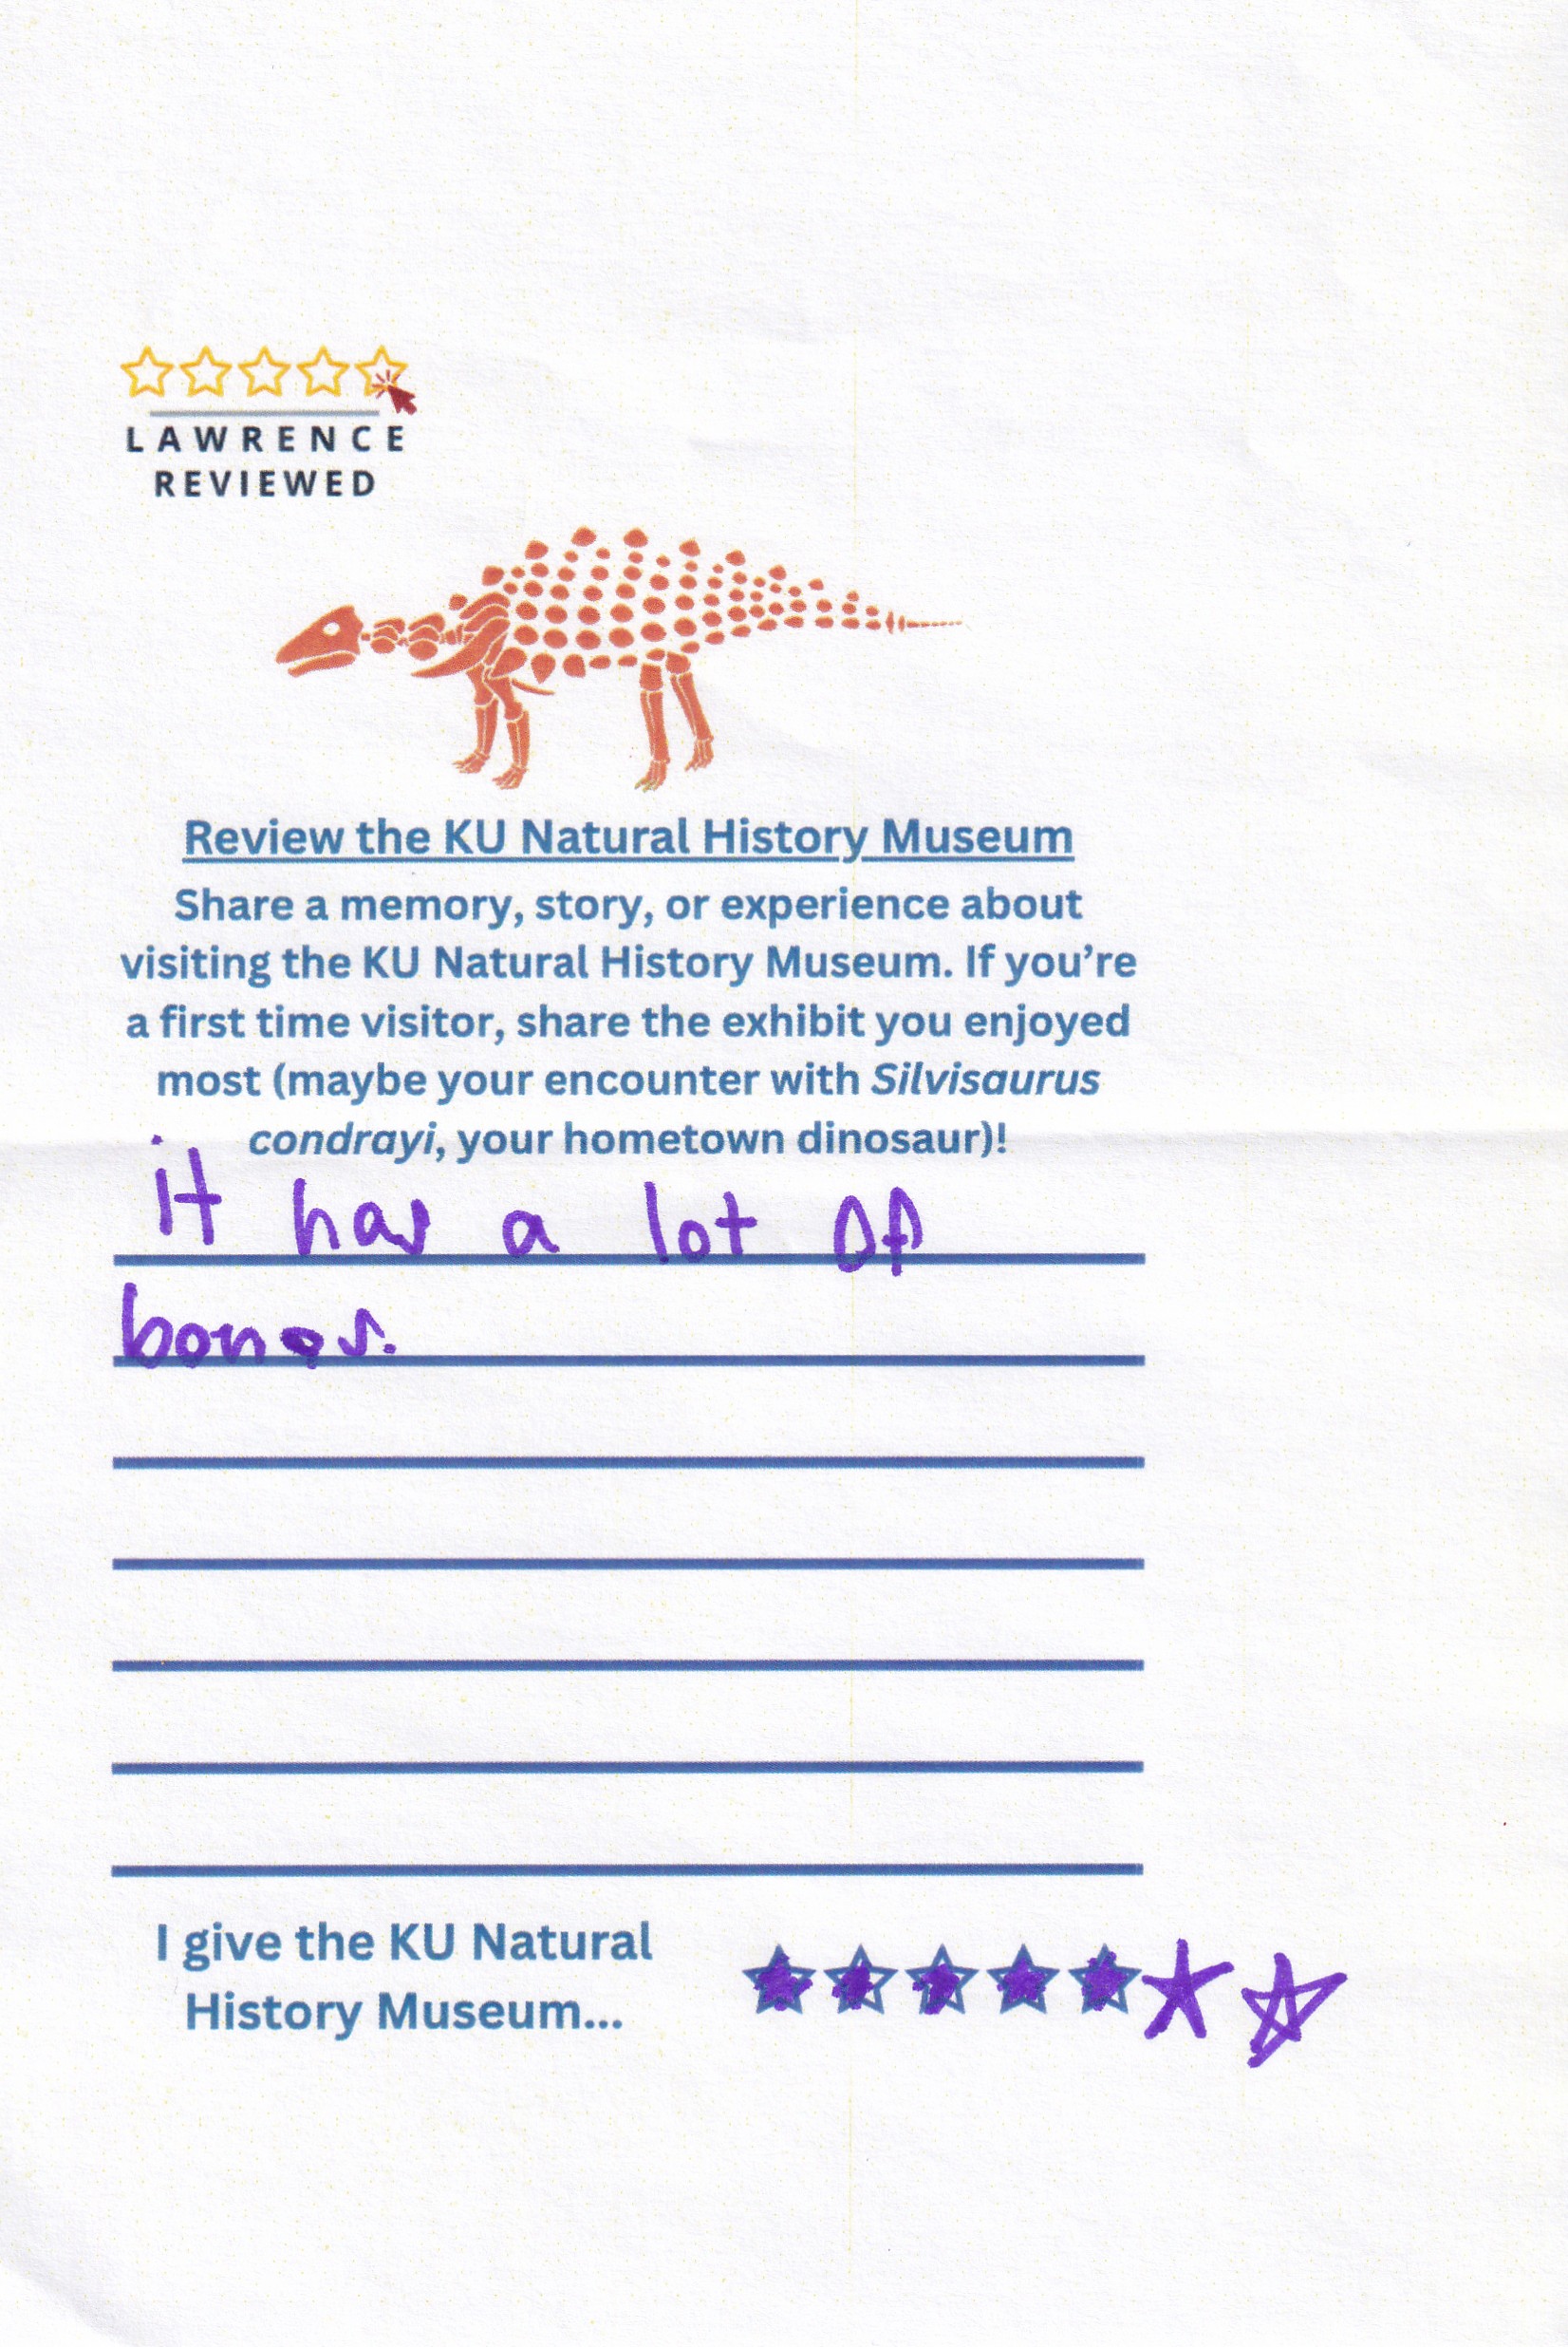 LAWRENCE
REVIEWED
Review the KU Natural History Museum
Share a memory, story, or experience about
visiting the KU Natural History Museum. If you're
a first time visitor, share the exhibit you enjoyed
most (maybe your encounter with Silvisaurus
condrayi, your hometown dinosaur)!
it has a lot of
bones.
I give the KU Natural
History Museum...